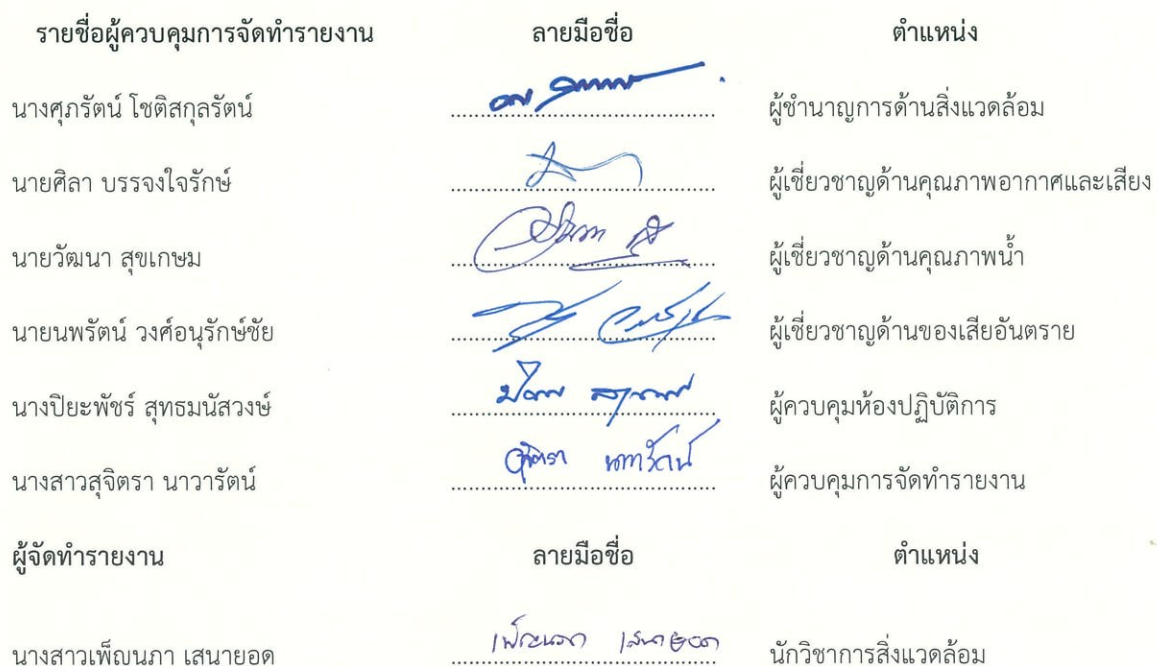 รายชื่อผู้ควบคุมการจัดทำรายงาน ลายมือชื่อ ตำแหน่ง
นางศุภรัตน์ โชติสกุลรัตน์ ผู้ชำนาญการด้านสิ่งแวดล้อม
นายศิลา บรรจงใจรักษ์ ผู้เชี่ยวชาญด้านคุณภาพอากาศและเสียง
นายวัฒนา สุขเกษม ผู้เชี่ยวชาญด้านคุณภาพน้ำ
นายนพรัตน์ วงศ์อนุรักษ์ชัย ผู้เชี่ยวชาญด้านของเสียอันตราย
นางปิยะพัชร์ สุทธมนัสวงษ์ ผู้ควบคุมห้องปฏิบัติการ
นางสาวสุจิตรา นาวารัตน์ สุจิตรา นาวารัตน์ ผู้ควบคุมการจัดทำรายงาน
ผู้จัดทำรายงาน ลายมือชื่อ ตำแหน่ง
นางสาวเพ็ญนภา เสนายอด เพ็ญนภา เสนายอด นักวิชาการสิ่งแวดล้อม